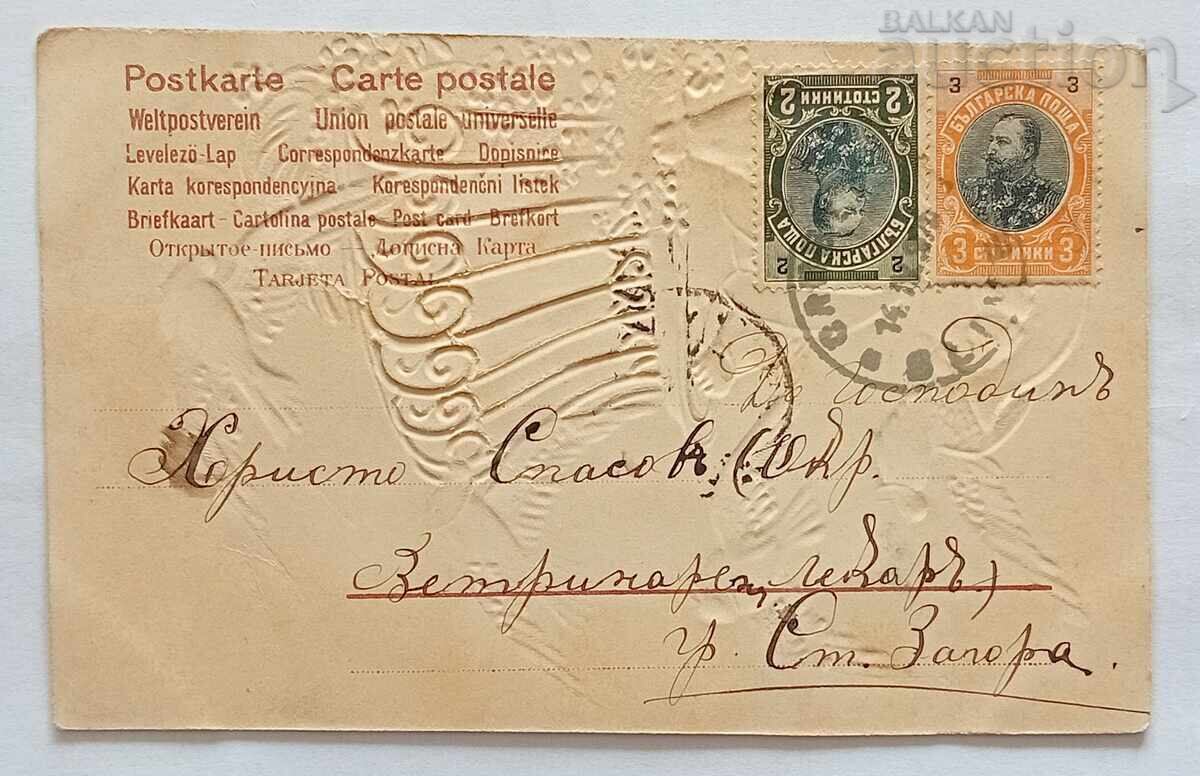 BALKAN
auction
Postkarte — Carte postale
Weltpostverein Union postale universelle
Levelező-Lap Correspondenzkarte Dopisnice
Karta korespondencyjna - Korespondenční listek
Briefkaart - Cartolina postale - Post card - Brefkort
Открытое-письмо — Дописна Карта
TARJETA POSTAL
2 СТОТИНКИ 2
БЪЛГАРСКА ПОЩА
2 2
3 3
БЪЛГАРСКА ПОЩА
3 СТОТИНКИ 3
Господинъ
Христо Спасовъ (Окр.
Ветеринаренъ лекаръ)
гр. Ст. Загора.